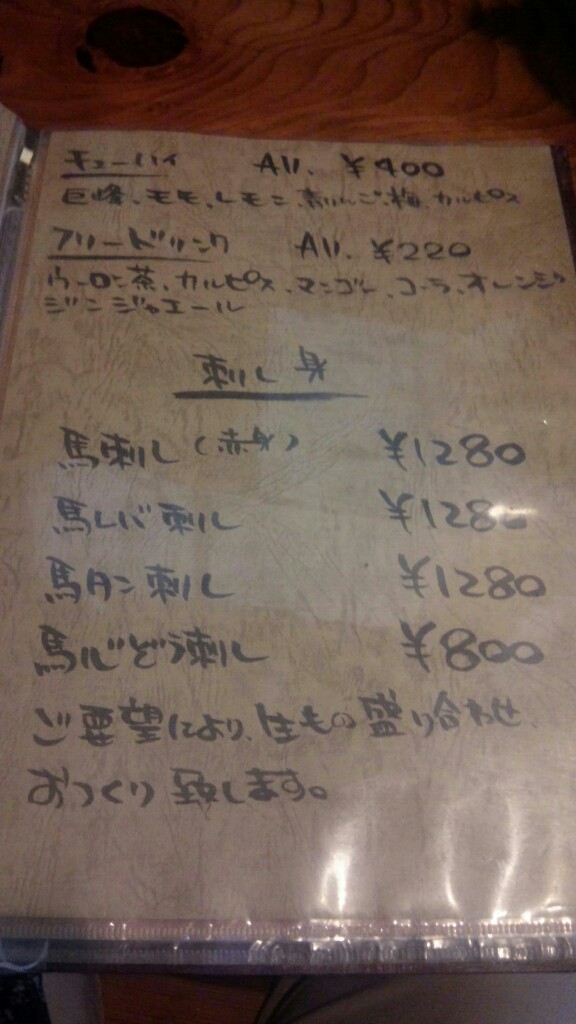 チューハイ All. ¥400
巨峰、モモ、レモン、青りんご、梅、カルピス
フリードリンク All. ¥220
ウーロン茶、カルピス、マンゴー、コーラ、オレンジ
ジンジャエール
刺し身
馬刺し(赤身) ¥1280
馬レバ刺し ¥1280
馬タン刺し ¥1280
馬心どう刺し ¥800
ご要望により、生もの盛り合わせ、
おつくり致します。